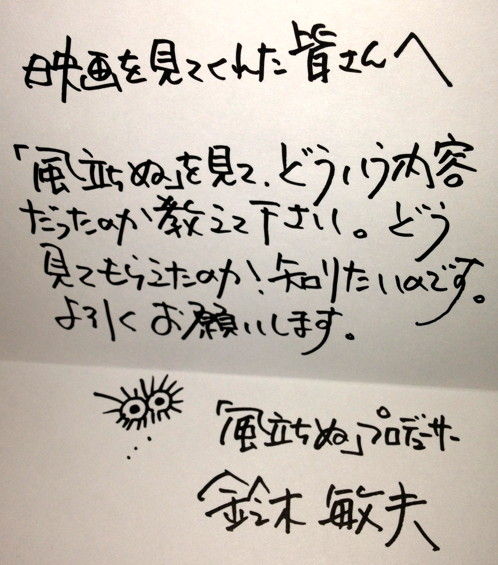 映画を見てくれた皆さんへ
「風立ちぬ」を見て、どういう内容
だったのか教えて下さい。どう
見てもらえたのか！知りたいのです。
よろしくお願いします。
「風立ちぬ」プロデューサー
鈴木敏夫